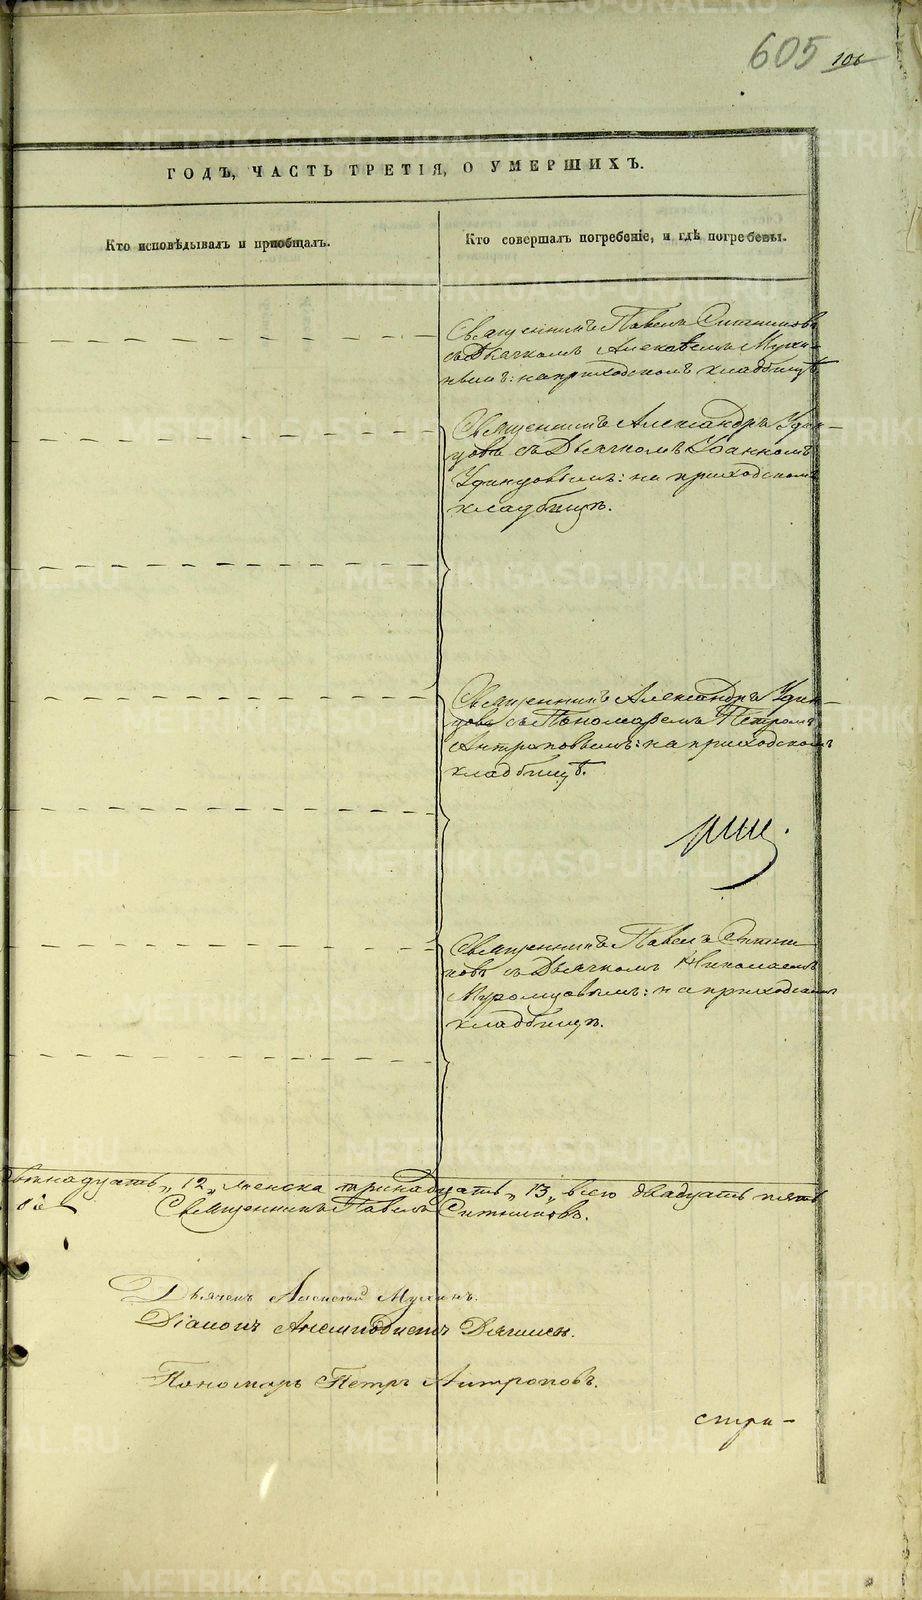 605 106
ГОДЪ, ЧАСТЬ ТРЕТІЯ, О УМЕРШИХЪ.
Кто исповѣдывалъ и пріобщалъ.
Кто совершалъ погребеніе, и гдѣ погребены.
Священникъ Павелъ Ситниковъ
съ Дьячкомъ Алексѣемъ Мухи-
нымъ: на приходскомъ кладбищѣ.
Священникъ Александръ Удин-
цовъ съ Дьячкомъ Іоанномъ
Удинцовымъ: на приходскомъ
кладбищѣ.
Священникъ Александръ Удин-
цовъ съ Пономаремъ Петромъ
Антроповымъ: на приходскомъ
кладбищѣ.
Священникъ Павелъ Ситни-
ковъ съ Дьячкомъ Николаемъ
Муромцовымъ: на приходскомъ
кладбищѣ.
двѣнадцать „12„ женска тринадцать „13„ всего двадцать пять
Священникъ Павелъ Ситниковъ.
Дьячекъ Алексѣй Мухинъ.
Діаконъ
Пономарь Петръ Антроповъ.
стра-
METRIKI.GASO-URAL.RU